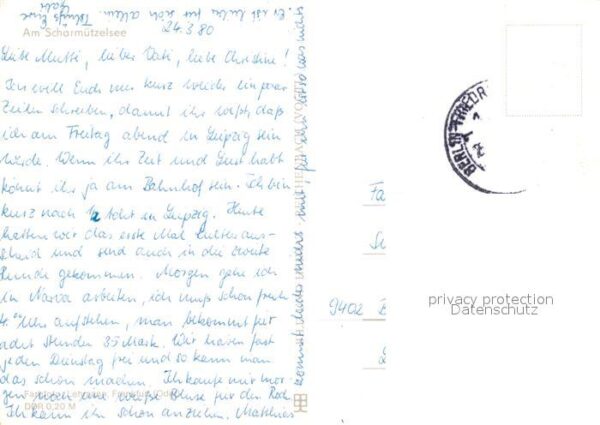 Am Scharmützelsee
24.3.80
Liebe Mutti, lieber Vati, liebe Christine!
Ich will Euch nur kurz wieder ein paar
Zeilen schreiben, damit ihr wißt, daß
ich am Freitag abend in Leipzig sein
werde. Wenn ihr Zeit und Lust habt
könnt ihr ja am Bahnhof sein. Ich bin
kurz nach in Leipzig. Heute
hatten wir das erste Mal
und sind auch in die zweite
Runde gekommen. Morgen gehe ich
in Narva arbeiten, ich muß schon früh
4.00 Uhr aufstehen, man bekommt für
acht Stunden 35 Mark. Wir haben fast
jeden Dienstag frei und so kann man
das schon machen. Ich kaufe mir mor-
gen eine weiße Bluse für den Rock
Ich kann ihn schon anziehen. Matthias
kommt leider nicht mit, für ihn
Er ist lieber für sich allein. Tschüß Eure
Gabi
DDR 0,20 M
BERLIN-FRIEDR
9402
privacy protection
Datenschutz